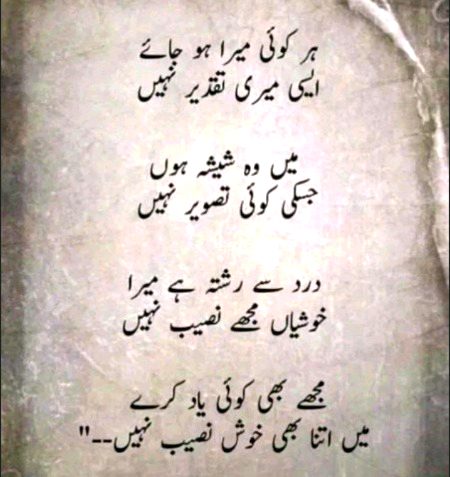 ہر کوئی میرا ہو جائے
ایسی میری تقدیر نہیں
میں وہ شیشہ ہوں
جسکی کوئی تصویر نہیں
درد سے رشتہ ہے میرا
خوشیاں مجھے نصیب نہیں
مجھے بھی کوئی یاد کرے
میں اتنا بھی خوش نصیب نہیں--"